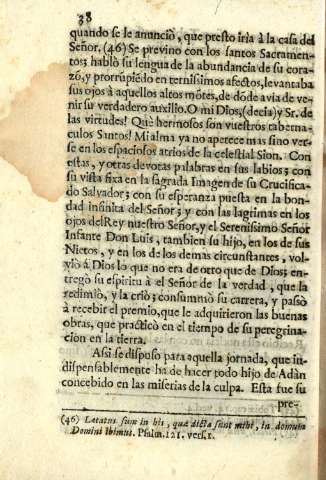 38
quando se le anunciò, que presto iria à la casa del
Señor. (46) Se previno con los santos Sacramen-
tos; hablò su lengua de la abundancia de su cora-
zõ, y prorrupiẽdo en ternissimos afectos, levantaba
sus ojos à aquellos altos mõtes, de dõde avia de ve-
nir su verdadero auxilio. O mi Dios, (decia) y Sr. de
las virtudes! Què hermosos son vuestros taberna-
culos Santos! Mi alma ya no apetece mas sino ver-
se en los espaciosos atrios de la celestial Sion. Con
estas, y otras devotas palabras en sus labios; con
su vista fixa en la sagrada Imagen de su Crucifica-
do Salvador; con su esperanza puesta en la bon-
dad infinita del Señor; y con las lagrimas en los
ojos del Rey nuestro Señor, y el Serenissimo Señor
Infante Don Luis, tambien su hijo, en los de sus
Nietos, y en los de los demas circunstantes, vol-
viò à Dios lo que no era de otro que de Dios; en-
tregò su espiritu à el Señor de la verdad, que la
redimiò, y la criò; consummò su carrera, y passò
à recebir el premio, que le adquirieron las buenas
obras, que practicò en el tiempo de su peregrina-
cion en la tierra.
Assi se dispuso para aquella jornada, que in-
dispensablemente ha de hacer todo hijo de Adàn
concebido en las miserias de la culpa. Esta fue su
pre-
(46) Lætatus sum in his, quæ dicta sunt mihi, in domum
Domini ibimus. Psalm. 121. vers. 1.